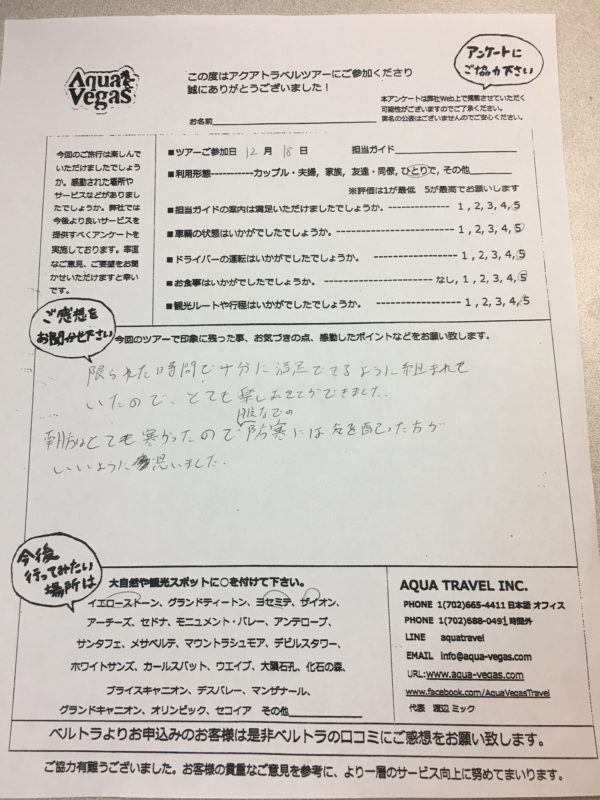 Aqua Vegas
この度はアクアトラベルツアーにご参加くださり
誠にありがとうございました！
アンケートに
ご協力下さい
本アンケートは弊社Web上で掲載させていただく
可能性がございますのでご了承ください。
実名の公表はございませんのでご安心ください。
お名前
今回のご旅行は楽しんで
いただけましたでしょう
か。感動された場所や
サービスなどがありまし
たでしょうか。弊社では
今後より良いサービスを
提供すべくアンケートを
実施しております。率直
なご意見、ご要望をお聞
かせいただけますと幸い
です。
■ツアーご参加日 12 月 18 日 担当ガイド
■利用形態-----------カップル・夫婦，家族，友達・同僚，ひとりで，その他
※評価は1が最低 5が最高でお願いします
■担当ガイドの案内は満足いただけましたでしょうか。 1 , 2, 3, 4, 5
■車輛の状態はいかがでしたでしょうか。 1 , 2, 3, 4, 5
■ドライバーの運転はいかがでしたでしょうか。 1 , 2, 3, 4, 5
■お食事はいかがでしたでしょうか。 なし, 1, 2, 3, 4, 5
■観光ルートや行程はいかがでしたでしょうか。 1 , 2, 3, 4, 5
ご感想を
お聞かせ下さい
今回のツアーで印象に残った事、お気づきの点、感動したポイントなどをお願い致します。
限られた時間で十分に満足できるように組まれて
いたので、とても楽しむことができました。
服などの
朝方はとても寒かったので防寒には気を配った方が
いいように思いました。
今後
行ってみたい
場所は
大自然や観光スポットに○を付けて下さい。
イエローストーン、グランドティートン、ヨセミテ、ザイオン、
アーチーズ、セドナ、モニュメント・バレー、アンテロープ、
サンタフェ、メサベルテ、マウントラシュモア、デビルスタワー、
ホワイトサンズ、カールスバット、ウエイブ、大隕石孔、化石の森、
ブライスキャニオン、デスバレー、マンザナール、
グランドキャニオン、オリンピック、セコイア その他
AQUA TRAVEL INC.
PHONE 1(702)665-4411 日本語 オフィス
PHONE 1(702)688-0491 時間外
LINE aquatravel
EMAIL info@aqua-vegas.com
URL:www.aqua-vegas.com
www.facebook.com/AquaVegasTravel
代表 渡辺 ミック
ベルトラよりお申込みのお客様は是非ベルトラの口コミにご感想をお願い致します。
ご協力有難うございました。お客様の貴重なご意見を参考に、より一層のサービス向上に努めてまいります。